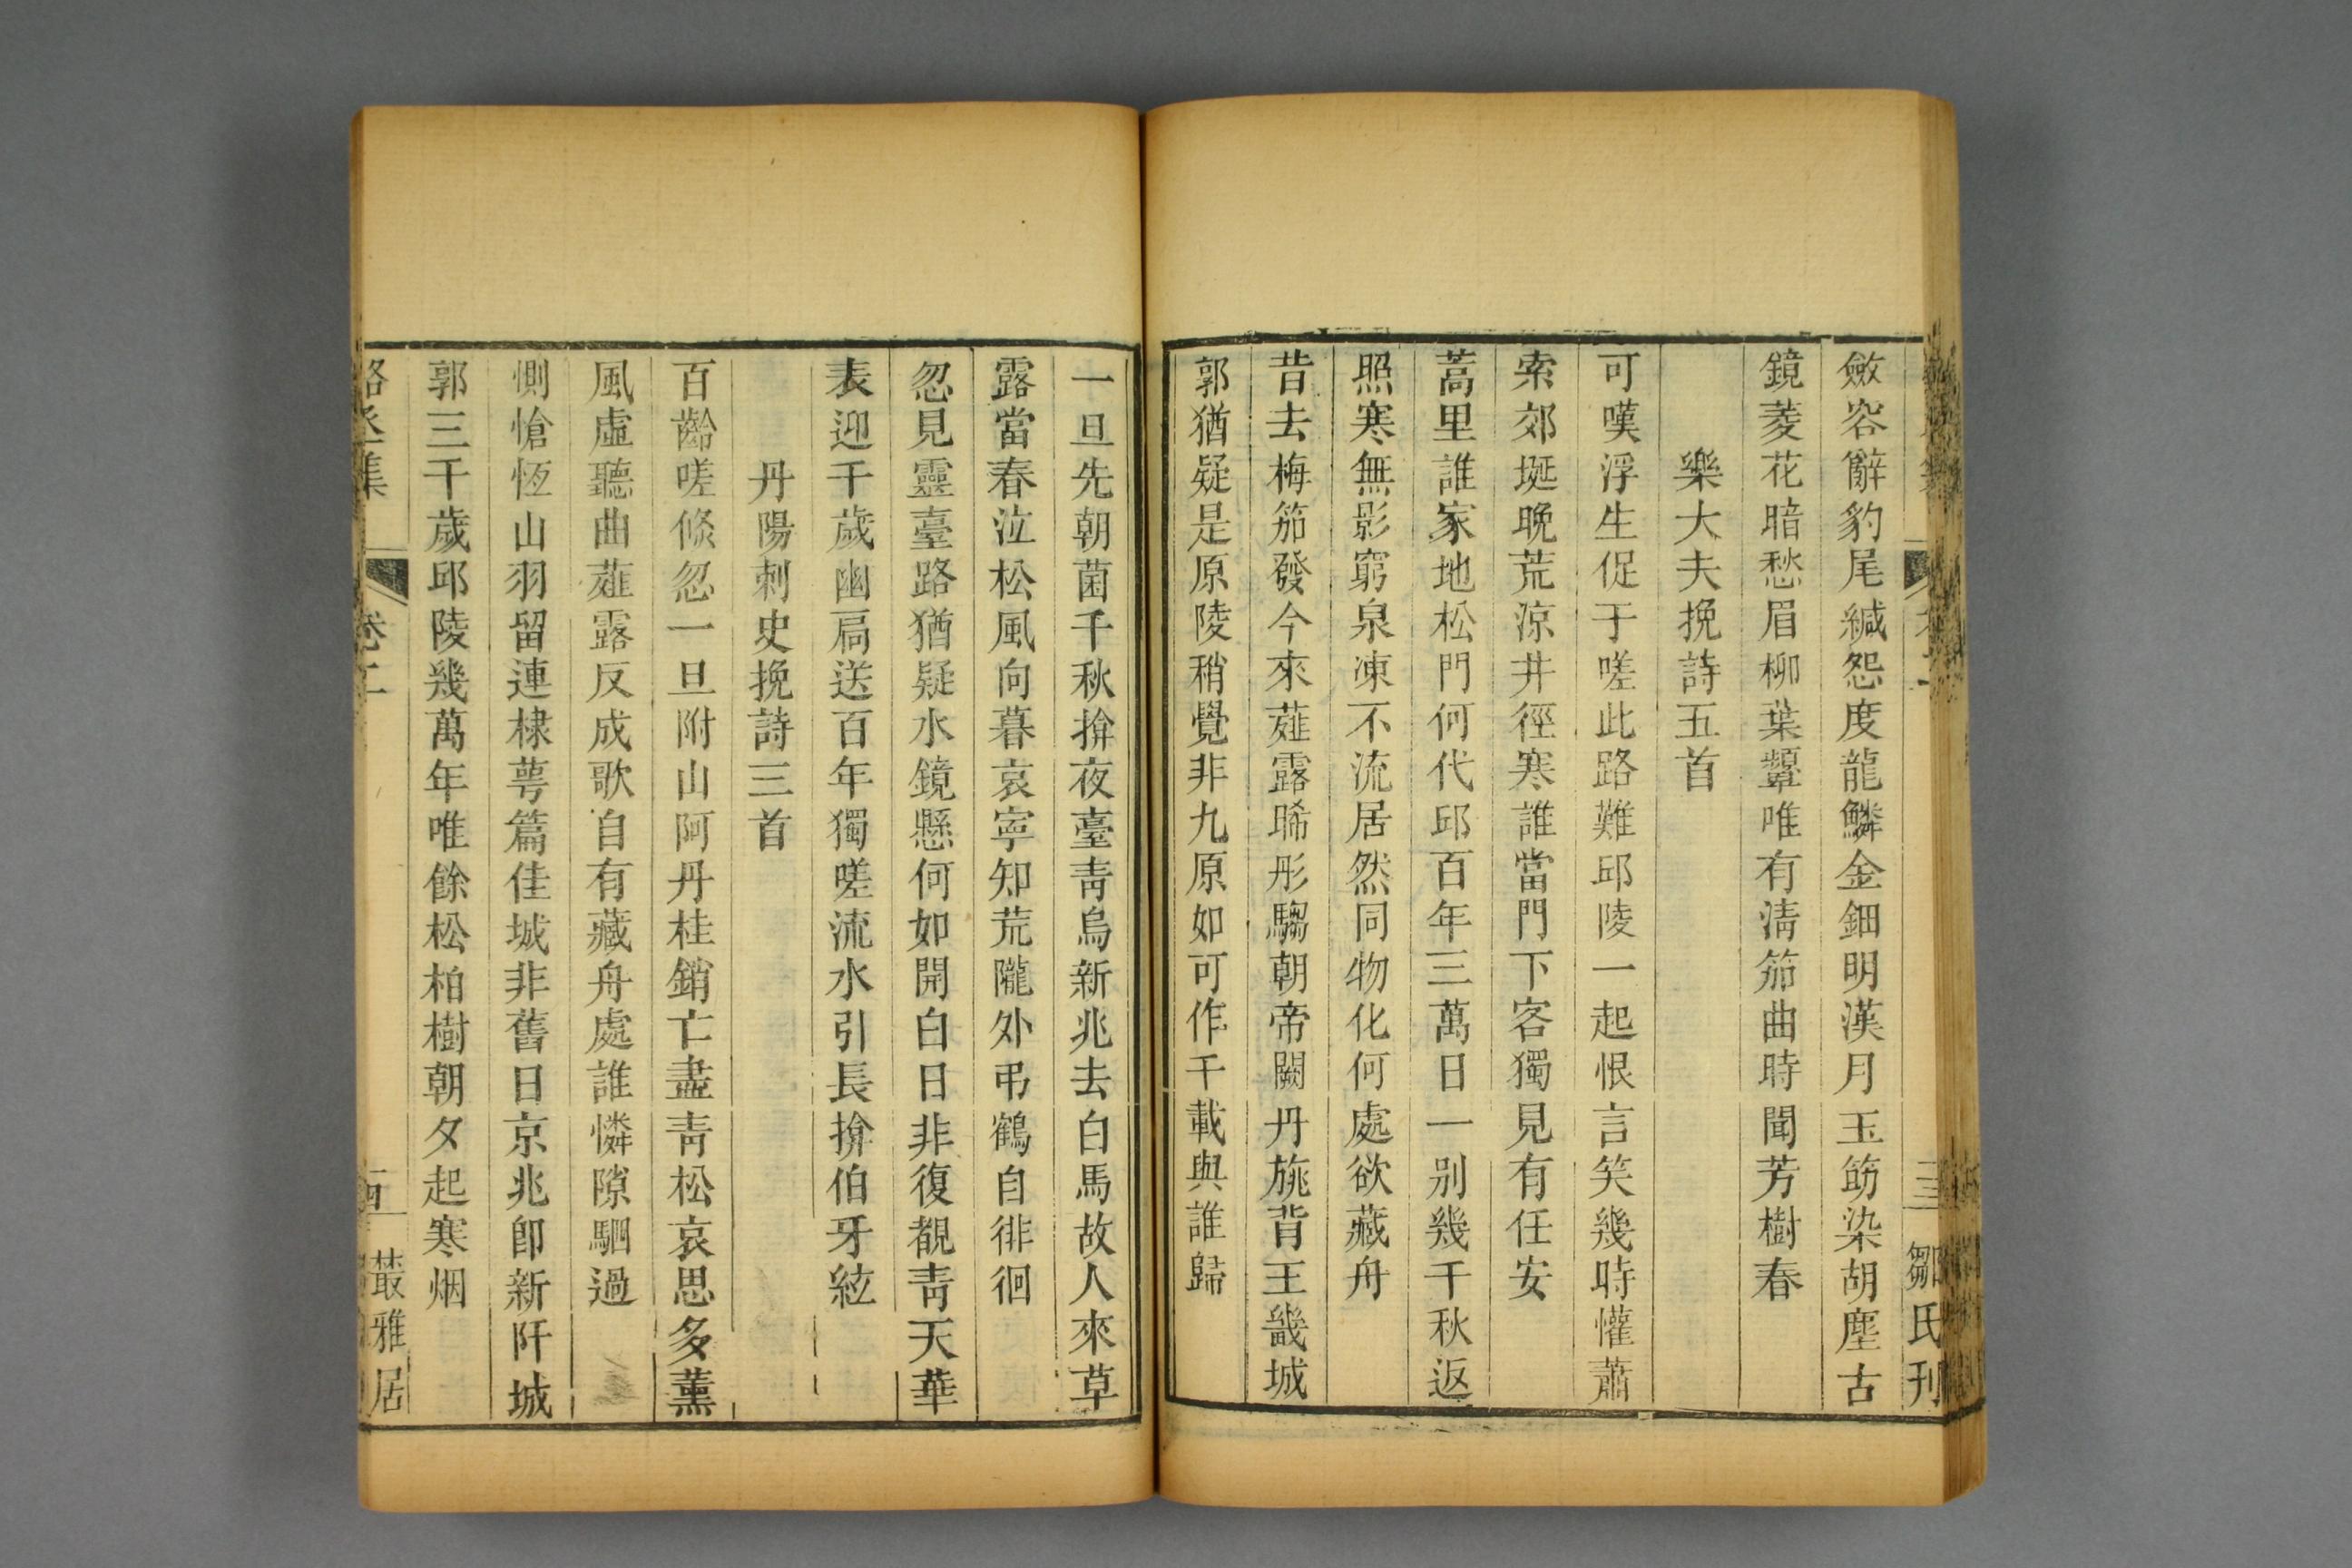 三 鄒氏刊
斂容辭豹尾緘怨度龍鱗金鈿明漢月玉筯染胡塵古
鏡菱花暗愁眉柳葉顰唯有淸笳曲時聞芳樹春
樂大夫挽詩五首
可嘆浮生促于嗟此路難邱陵一起恨言笑幾時懽蕭
索郊埏晚荒涼井徑寒誰當門下客獨見有任安
蒿里誰家地松門何代邱百年三萬日一別幾千秋返
照寒無影窮泉凍不流居然同物化何處欲藏舟
昔去梅笳發今來薤露晞彤騶朝帝闕丹旐背王畿城
郭猶疑是原陵稍覺非九原如可作千載與誰歸
一旦先朝菌千秋揜夜臺靑烏新兆去白馬故人來草
露當春泣松風向暮哀寜知荒隴外弔鶴自徘徊
忽見靈臺路猶疑水鏡懸何如開白日非復覩靑天華
表迎千歲幽扃送百年獨嗟流水引長揜伯牙絃
丹陽刺史挽詩三首
百齡嗟倏忽一旦附山阿丹桂銷亡盡靑松哀思多薰
風虛聽曲薤露反成歌自有藏舟處誰憐隙駟過
惻愴恆山羽留連棣萼篇佳城非舊日京兆卽新阡城
郭三千歲邱陵幾萬年唯餘松柏樹朝夕起寒烟
駱丞集 卷二 四 叢雅居